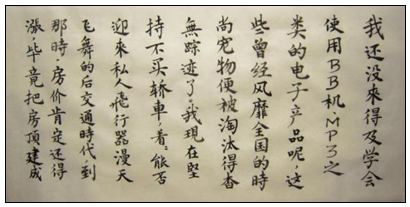 我还没來得及学会
使用BB机、MP3之
类的电子产品呢，这
些曾经风靡全国的時
尚宠物便被淘汰得杳
無踪迹了。我現在坚
持不买轿車，看。能否
迎來私人飛行器漫天
飞舞的后交通時代到
那時，房价肯定还得
漲，毕竟把房頂建成